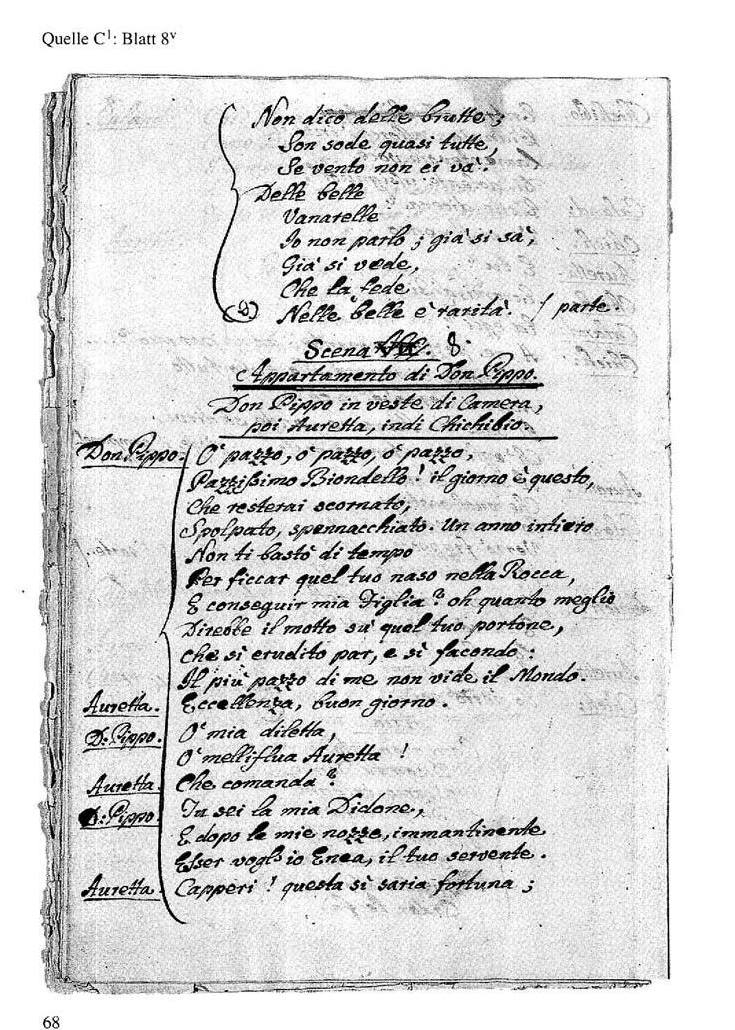 Quelle C¹: Blatt 8ᵛ
Non dico delle brutte;
Son sode quasi tutte,
Se vento non ci va'.
Delle belle
Vanarelle
Io non parlo; gia' si sa',
Gia' si vede,
Che la fede
Nelle belle e' rarita'. / parte.
Scena 8.
Appartamento di Don Pippo.
Don Pippo in veste di Camera,
poi Auretta, indi Chichibio.
Don Pippo. O' pazzo, o' pazzo, o' pazzo,
Pazzissimo Biondello! il giorno è questo,
Che resterai scornato,
Spolpato, spennacchiato. Un anno intiero
Non ti bastò di tempo
Per ficcar quel tuo naso nella Rocca,
E conseguir mia Figlia? oh quanto meglio
Direbbe il motto su' quel tuo portone,
Che si erudito par, e si facondo:
Il più pazzo di me non vide il Mondo.
Auretta. Eccellenza, buon giorno.
D: Pippo. O' mia diletta,
O' melliflua Auretta!
Auretta. Che comanda?
D: Pippo. Tu sei la mia Didone,
E dopo le mie nozze, immantinente
Esser vogl' io Enea, il tuo servente.
Auretta. Capperi! questa si saria fortuna;
68